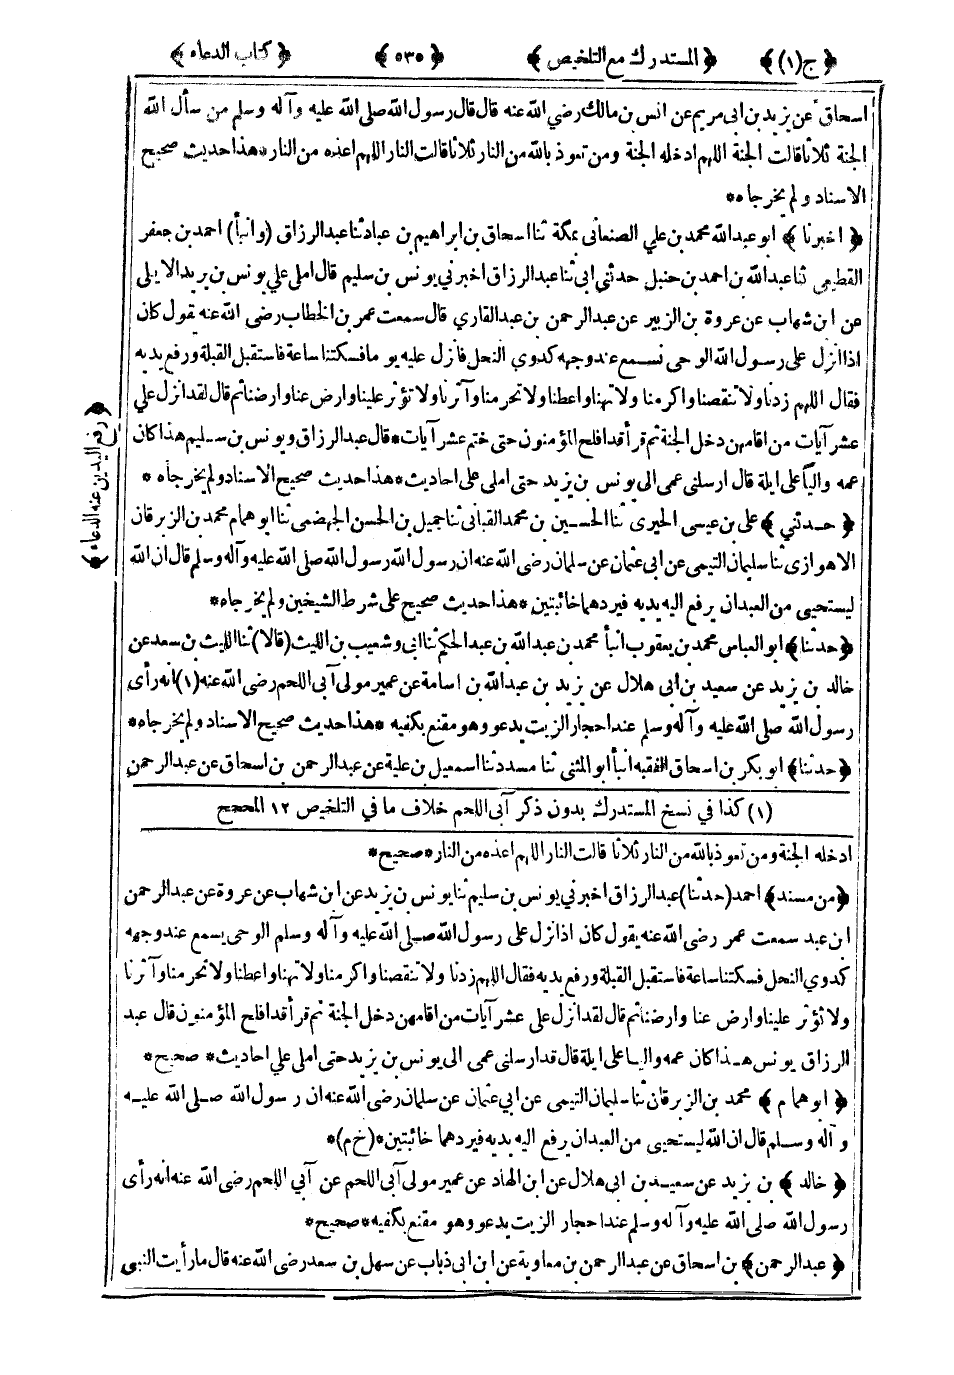 ﴿ ج (١) ﴾ ﴿ المستدرك مع التلخيص ﴾ ﴿ ٥٣٥ ﴾ ﴿ كتاب الدعاء ﴾
اسحاق عن يزيد بن ابى مريم عن انس بن مالك رضي الله عنه قال قال رسول الله صلى الله عليه وآله وسلم من سأل الله
الجنة ثلاثا قالت الجنة اللهم ادخله الجنة ومن تعوذ بالله من النار ثلاثا قالت النار اللهم اعذه من النار * هذا حديث صحيح
الاسناد ولم يخرجاه *
﴿ اخبرنا ﴾ ابو عبد الله محمد بن علي الصنعانى بمكة ثنا اسحاق بن ابراهيم بن عباد ثنا عبد الرزاق (وانبأ) احمد بن جعفر
القطيعي ثنا عبد الله بن احمد بن حنبل حدثني ابى ثنا عبد الرزاق اخبرني يونس بن سليم قال املى علي يونس بن يزيد الايلى
عن ابن شهاب عن عروة بن الزبير عن عبد الرحمن بن عبد القاري قال سمعت عمر بن الخطاب رضى الله عنه يقول كان
اذا انزل على رسول الله الوحى نسمع عند وجهه كدوي النحل فانزل عليه يوما فسكتنا ساعة فاستقبل القبلة ورفع يديه
فقال اللهم زدنا ولا تنقصنا واكرمنا ولا تهنا واعطنا ولا تحرمنا وآثرنا ولا تؤثر علينا وارض عنا وارضنا ثم قال لقد انزل علي
عشر آيات من اقامهن دخل الجنة ثم قرأ قد افلح المؤمنون حتى ختم عشر آيات * قال عبد الرزاق ويونس بن سليم هذا كان
عمه واليا على ايلة قال ارسلنى عمى الى يونس بن يزيد حتى املى على احاديث * هذا حديث صحيح الاسناد ولم يخرجاه *
﴿ حدثني ﴾ علي بن عيسى الحيرى ثنا الحسين بن محمد القبانى ثنا جميل بن الحسن الجهضمى ثنا ابو همام محمد بن الزبرقان
الاهوازى ثنا سليمان التيمى عن ابى عثمان عن سلمان رضى الله عنه ان رسول الله رسول الله صلى الله عليه وآله وسلم قال ان الله
ليستحيى من العبد ان يرفع اليه يديه فيردهما خائبتين * هذا حديث صحيح على شرط الشيخين ولم يخرجاه *
﴿ حدثنا ﴾ ابو العباس محمد بن يعقوب انبأ محمد بن عبد الله بن عبد الحكم ثنا ابى وشعيب بن الليث (قالا) ثنا الليث بن سعد عن
خالد بن يزيد عن سعيد بن ابى هلال عن يزيد بن عبد الله بن اسامة عن عمير مولى آبى اللحم رضى الله عنه (١) انه رأى
رسول الله صلى الله عليه وآله وسلم عند احجار الزيت يدعو وهو مقنع بكفيه * هذا حديث صحيح الاسناد ولم يخرجاه *
﴿ حدثنا ﴾ ابو بكر بن اسحاق الفقيه انبأ ابو المثنى ثنا مسدد ثنا اسمعيل بن علية عن عبد الرحمن بن اسحاق عن عبد الرحمن
﴿ رفع اليدين عند الدعاء ﴾
(١) كذا في نسخ المستدرك بدون ذكر آبى اللحم خلاف ما في التلخيص ١٢ المصحح
ادخله الجنة ومن تعوذ بالله من النار ثلاثا قالت النار اللهم اعذه من النار * صحيح *
﴿ من مسند ﴾ احمد (حدثنا) عبد الرزاق اخبرني يونس بن سليم ثنا يونس بن يزيد عن ابن شهاب عن عروة عن عبد الرحمن
ابن عبد سمعت عمر رضى الله عنه يقول كان اذا نزل على رسول الله صلى الله عليه وآله وسلم الوحى يسمع عند وجهه
كدوي النحل فسكتنا ساعة فاستقبل القبلة ورفع يديه فقال اللهم زدنا ولا تنقصنا واكرمنا ولا تهنا واعطنا ولا تحرمنا وآثرنا
ولا تؤثر علينا وارض عنا وارضنا ثم قال لقد انزل على عشر آيات من اقامهن دخل الجنة ثم قرأ قد افلح المؤمنون قال عبد
الرزاق يونس هذا كان عمه واليا على ايلة قال قد ارسلنى عمى الى يونس بن يزيد حتى املى علي احاديث * صحيح *
﴿ ابو همام ﴾ محمد بن الزبرقان ثنا سليمان التيمى عن ابي عثمان عن سلمان رضى الله عنه ان رسول الله صلى الله عليه
وآله وسلم قال ان الله ليستحيى من العبد ان يرفع اليه يديه فيردهما خائبتين * (خ م) *
﴿ خالد ﴾ بن يزيد عن سعيد بن ابى هلال عن ابن الهاد عن عمير مولى آبى اللحم عن آبي اللحم رضى الله عنه انه رأى
رسول الله صلى الله عليه وآله وسلم عند احجار الزيت يدعو وهو مقنع بكفيه * صحيح *
﴿ عبد الرحمن ﴾ بن اسحاق عن عبد الرحمن بن معاوية عن ابن ابى ذباب عن سهل بن سعد رضى الله عنه قال ما رأيت النبى